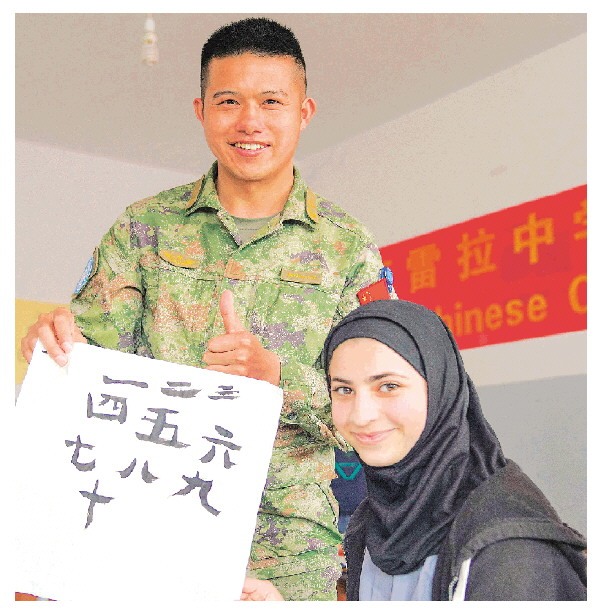 一二三
四五六
七八九
十
雷拉中
hinese